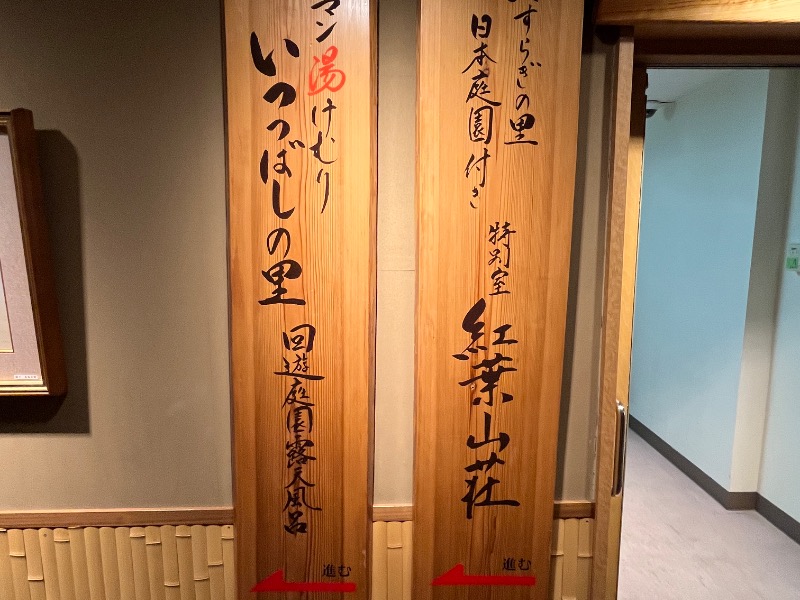 すらぎの里
日本庭園付き
特別室
紅葉山荘
進む
マン湯けむり
いつつぼしの里
回遊庭園露天風呂
進む